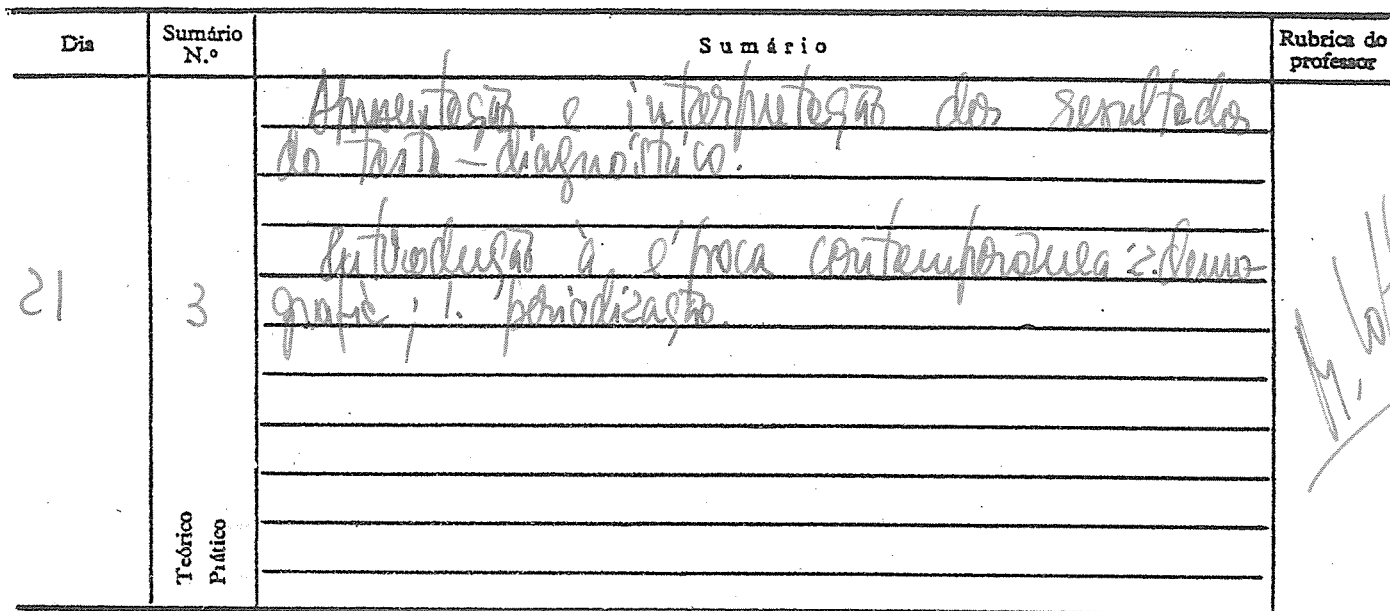 Dia Sumário N.º Sumário Rubrica do professor
Apresentação e interpretação dos resultados
do teste-diagnóstico.
Introdução à época contemporânea: 2. Demo-
21 3 grafia; 1. periodização.
M.
Teórico
Prático